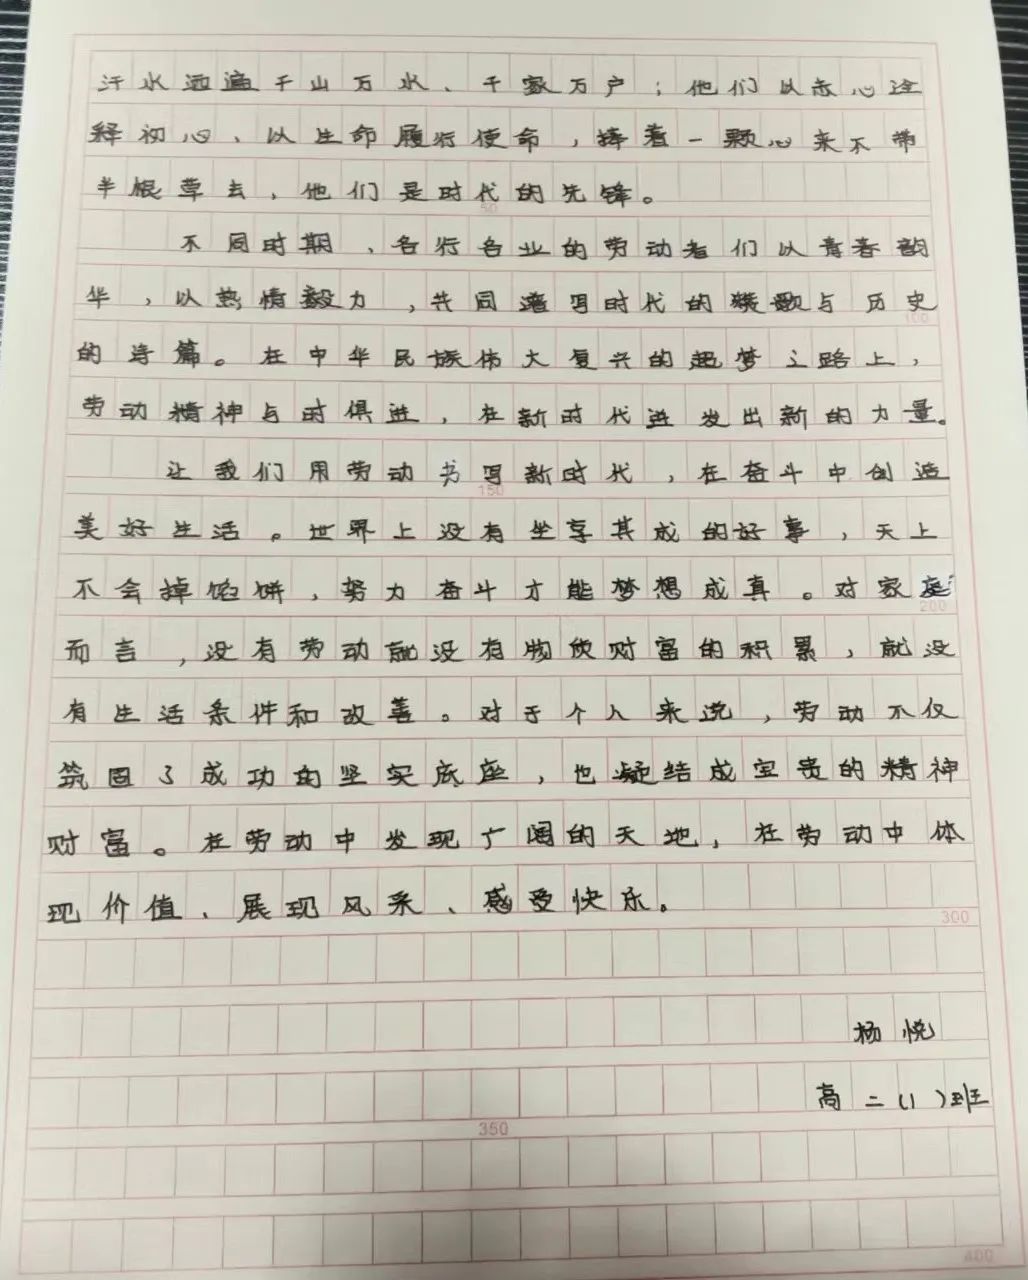 汗水洒遍千山万水、千家万户；他们以赤心诠
释初心、以生命履行使命，捧着一颗心来不带
半根草去，他们是时代的先锋。
50
不同时期、各行各业的劳动者们以青春韵
华，以热情毅力，共同谱写时代的赞歌与历史
100
的诗篇。在中华民族伟大复兴的追梦之路上，
劳动精神与时俱进，在新时代迸发出新的力量。
让我们用劳动书写新时代，在奋斗中创造
150
美好生活。世界上没有坐享其成的好事，天上
不会掉馅饼，努力奋斗才能梦想成真。对家庭
200
而言，没有劳动就没有物质财富的积累，就没
有生活条件和改善。对于个人来说，劳动不仅
筑固了成功的坚实底座，也凝结成宝贵的精神
财富。在劳动中发现广阔的天地，在劳动中体
现价值、展现风采、感受快乐。
300
杨悦
高二(1)班
350
400